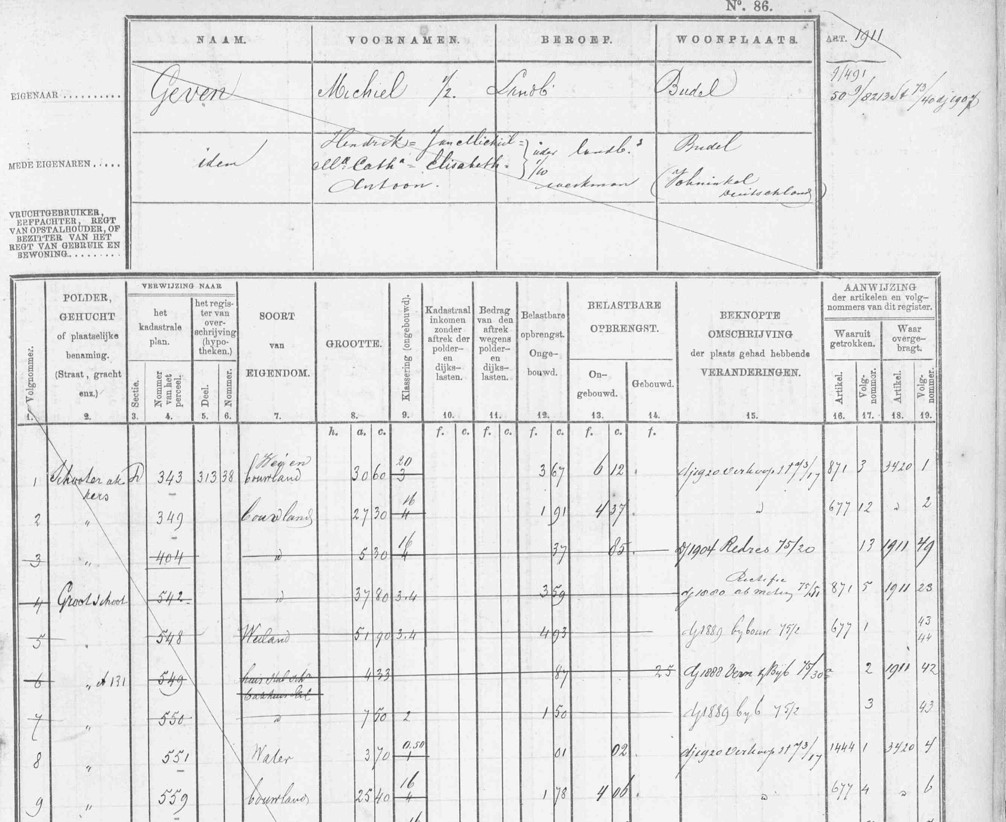 No. 86.
NAAM. VOORNAMEN. BEROEP. WOONPLAATS. ART. 1911
EIGENAAR .......... Geven Michiel 1/2. Landb. Budel
9/491
MEDE EIGENAREN ..... idem
Hendrik = Jan Michiel =
Ma Catha = Elisabeth.
Antoon.
ieder landb.s
1/10
werkman
Budel
VRUCHTGEBRUIKER,
ERFPACHTER, REGT
VAN OPSTALHOUDER, OF
BEZITTER VAN HET
REGT VAN GEBRUIK EN
BEWONING.......
Volgnommer.
1.
POLDER,
GEHUCHT
of plaatselijke
benaming.
(Straat, gracht
enz.)
2.
VERWIJZING NAAR
het
kadastrale
plan.
Sectie.
3.
Nommer
van het
perceel.
4.
het regis-
ter van
over-
schrijving
(hypo-
theken.)
Deel.
5.
Nommer.
6.
SOORT
van
EIGENDOM.
7.
GROOTTE.
8.
Klassering (ongebouwd).
9.
Kadastraal
inkomen
zonder
aftrek der
polder-
en
dijks-
lasten.
10.
Bedrag
van den
aftrek
wegens
polder-
en
dijks-
lasten.
11.
Belastbare
opbrengst.
Onge-
bouwd.
12.
BELASTBARE
OPBRENGST.
On-
gebouwd.
13.
Gebouwd.
14.
BEKNOPTE
OMSCHRIJVING
der plaats gehad hebbende
VERANDERINGEN.
15.
AANWIJZING
der artikelen en volg-
nommers van dit register.
Waaruit
getrokken.
Artikel.
16.
Volg-
nommer.
17.
Waar
overge-
bragt.
Artikel.
18.
Volg-
nommer.
19.
h. a. c. f. c. f. c. f. c. f. c. f.
1 Schooter ak kers D 343 313 38 Weg en bouwland 30 60 20 3 3 67 6 12 dj 1920 verkoop 871 3 3420 1
2 " 349 bouwland 27 30 16 4 1 91 4 37 " 677 12 " 2
3 " 404 " 5 30 16 4 37 85 dj 1904 Redres 75/20 13 1911 49
4 Grootschoot 542 " 37 80 3.4 3 59 871 5 1911 23
5 " 548 Weiland 51 90 3.4 4 93 dj 1889 bybouw 75/2 677 1 43 44
6 " A 131 549 4 33 87 25 2 1911 42
7 " 550 " 7 50 2 1 50 dj 1889 byb 75/2 3 43
8 " 551 Water 3 70 0.50 1 01 02 dj 1920 verkoop 1444 1 3420 4
9 " 559 bouwland 25 40 16 4 1 78 4 06 " 677 4 " 6